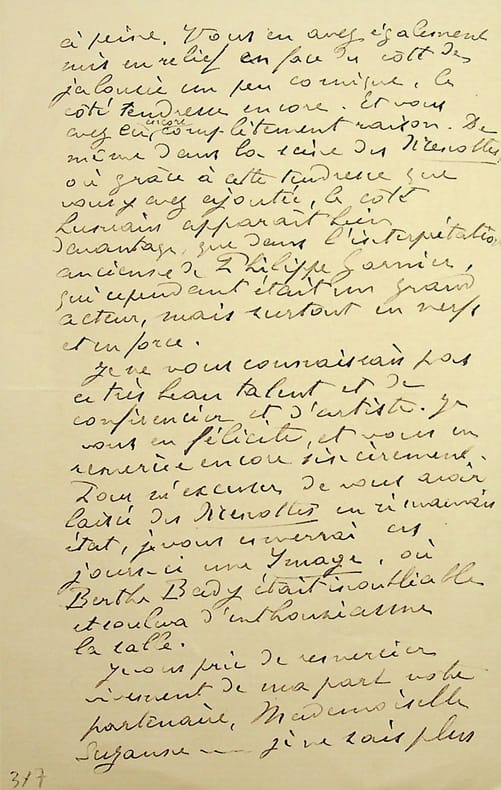 à peine. Vous en avez également
mis en relief en face du côté des
jalousie un peu comique, le
côté tendresse encore. Et vous
avez eu, encore complètement raison. De
même dans la scène des Menottes,
où grâce à cette tendresse que
vous y avez ajoutée, le côté
humain apparaît bien
davantage, que dans l'interprétation
ancienne de Philippe Garnier,
qui cependant était un grand
acteur, mais surtout en verfs
et en force.
Je ne vous connaissais pas
ce très beau talent et de
conférencier et d'artiste. Je
vous en félicite, et vous en
remercie encore sincèrement.
Pour m'excuser de vous avoir
laissé des Menottes en si mauvais
état, je vous enverrai ces
jours-ci une Image, où
Berthe Bady était inoubliable
et souleva d'enthousiasme
la salle.
Je vous prie de remercier
vivement de ma part votre
partenaire, Mademoiselle
Suzanne — je ne sais plus
317